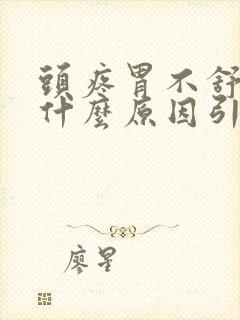 頭疼胃不舒
什麼原因引
廖星